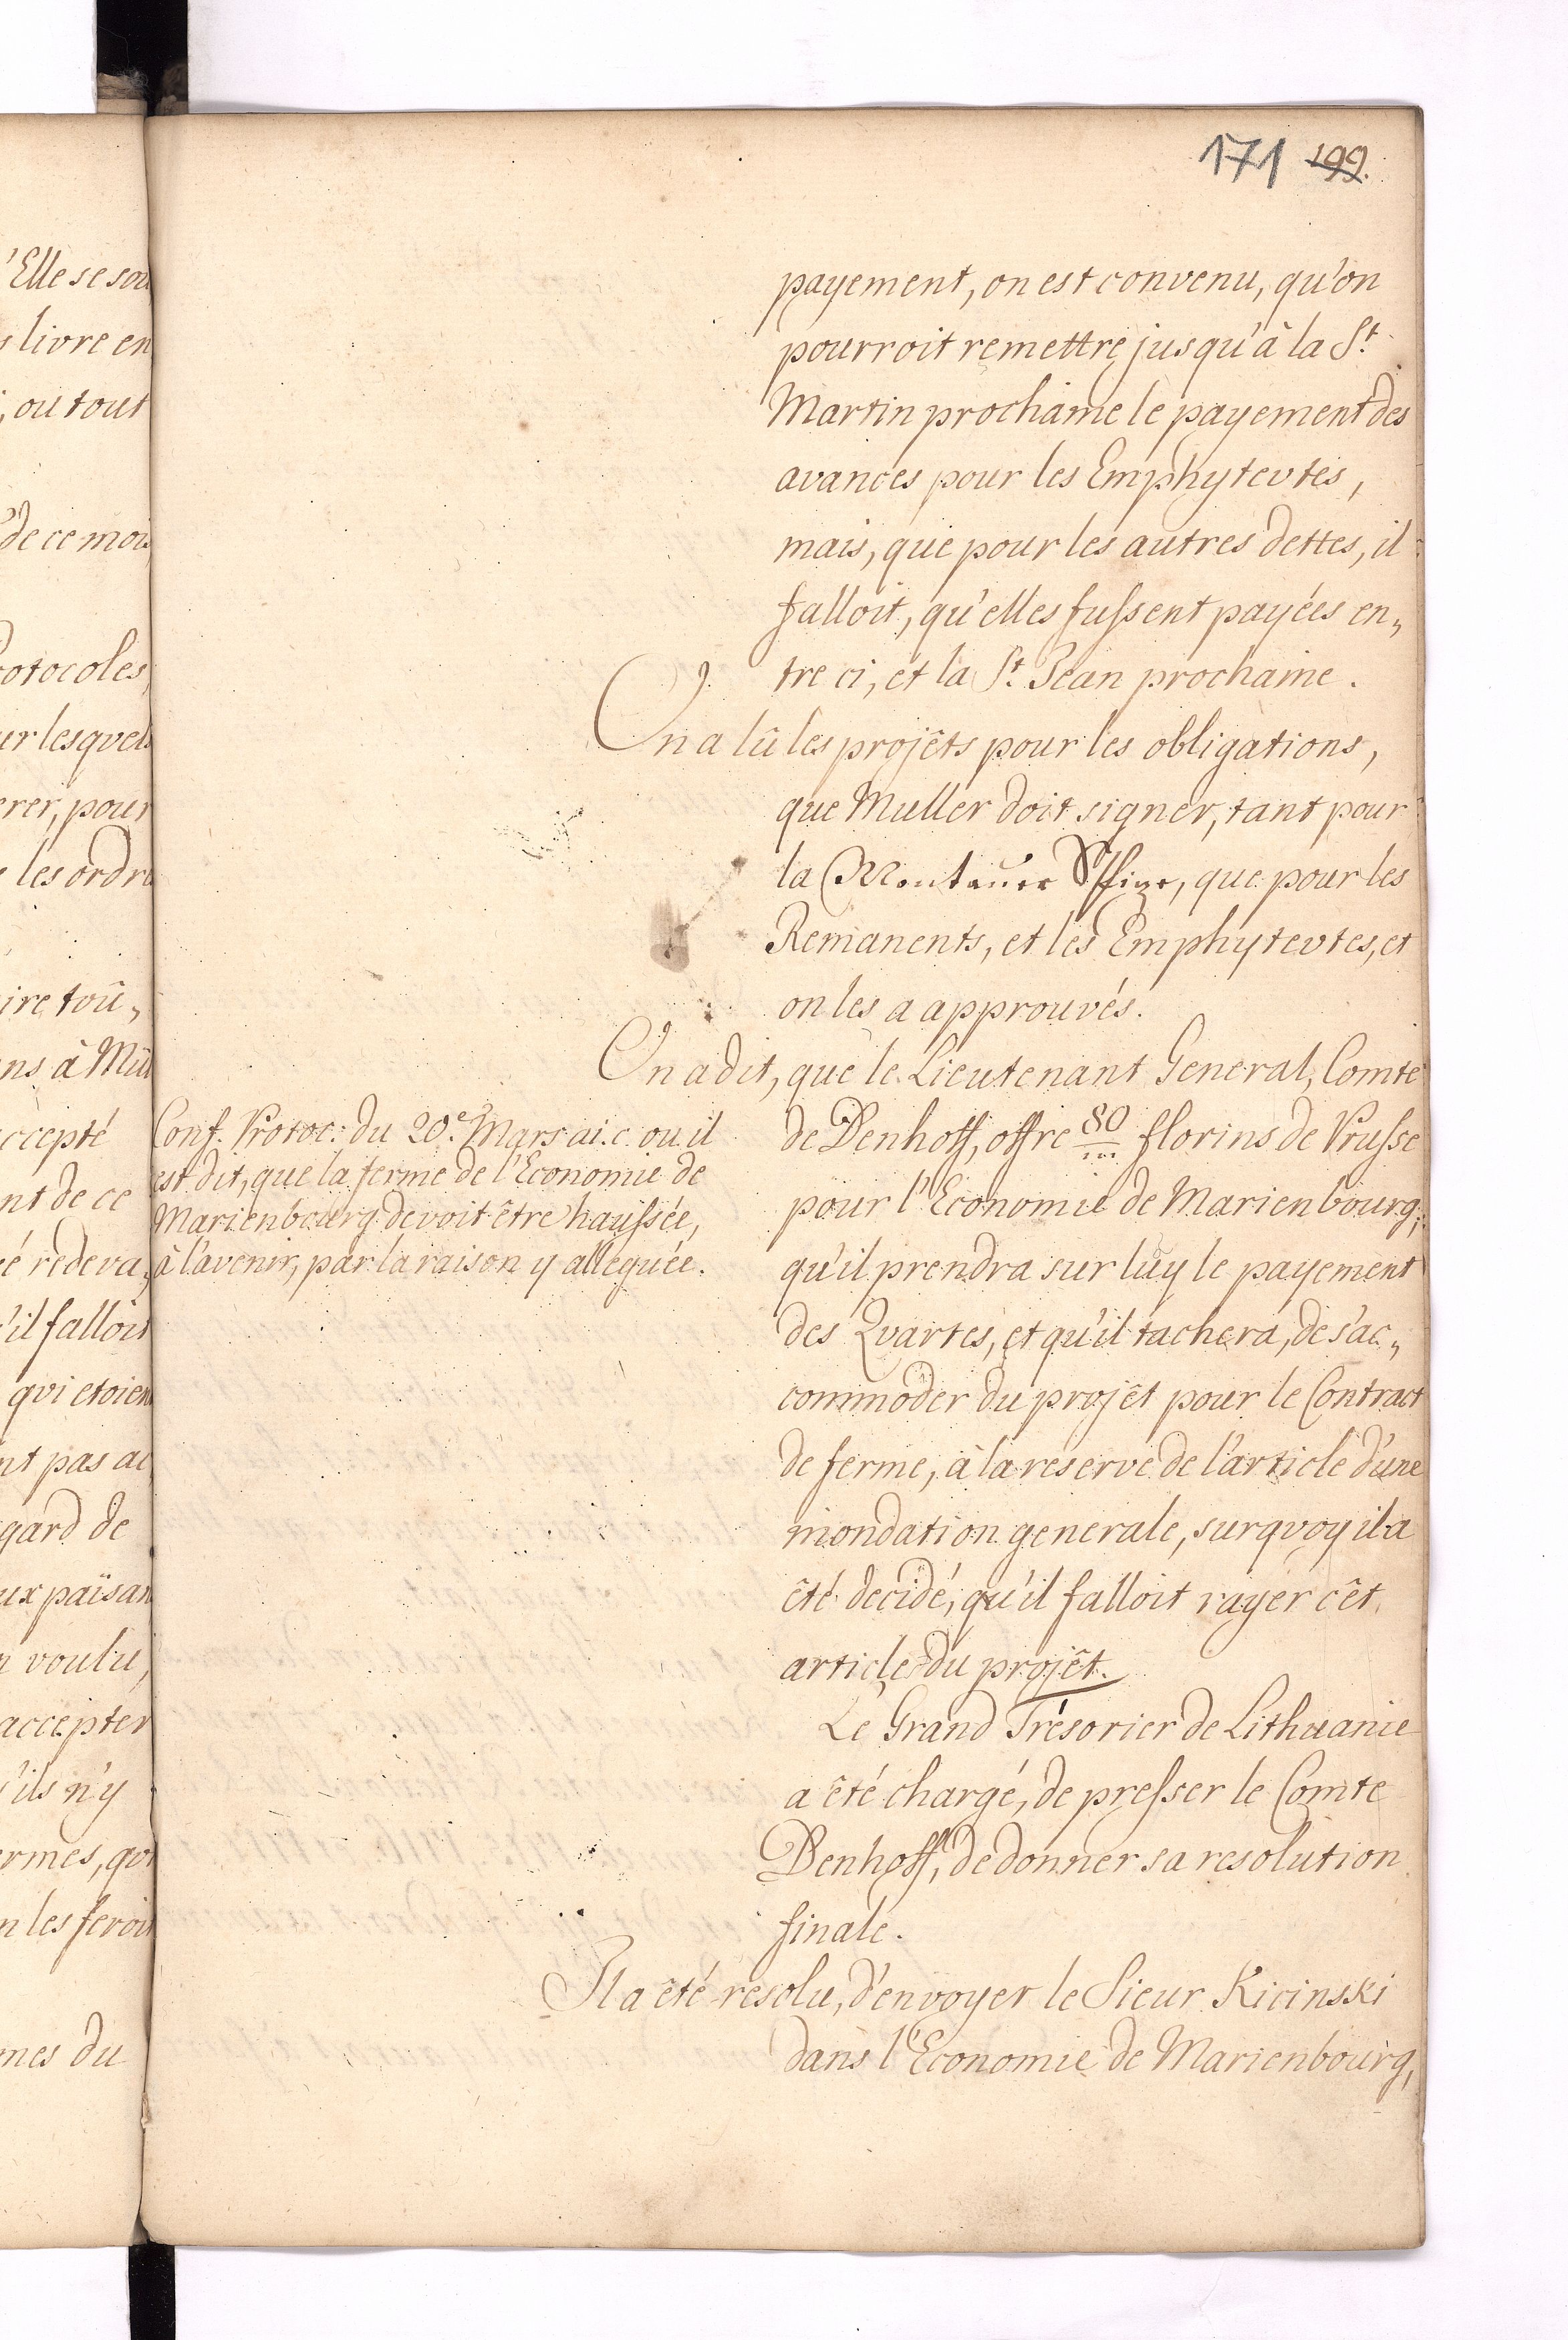 171 199.
payement, on est convenu, qu'on
pourroit remettre jusqu'à la St.
Martin prochaine le payement des
avances pour les Emphytevtes,
mais, que pour les autres dettes, il
falloit, qu'elles fussent payées en„
tre ci, et la St. Jean prochaine.
On a lû les projêts pour les obligations,
que Muller doit signer, tant pour
la Montauer, que pour les
Remanents, et les Emphytevtes, et
on les a approuvés.
On a dit, que le Lieutenant General, Comte
de Denhoff, offre 80 florins de Prusse
pour l'Economie de Marienbourg;
qu'il prendra sur luy le payement
des Qvartes, et qu'il tachera, de s'ac„
commoder du projêt pour le Contract
de ferme, à la reserve de l'article d'une
inondation generale, surqvoy il a
êté decidé, qu'il falloit rayer cêt
article du projêt.
Conf. Protoc: du 20.e Mars ai. c. ou il
est dit, que la ferme de l'Economie de
Marienbourg devoit être haussée,
à l'avenir, par la raison y alleguée.
Le Grand Trésorier de Lithuanie
a êté chargé, de presser le Comte
Denhoff, de donner sa resolution
finale.
Il a êté resolu, d'envoyer le Sieur Kicinski
dans l'Economie de Marienbourg,
'Elle se sou
s livre en
, ou tout
de ce mois
rotocoles,
ur lesqvels
erer, pour
les ordre
ire toû„
ns à Mül
ccepté
nt de ce
é redeva„
'il falloit
qvi etoien
nt pas ac
gard de
ux païsan
voulu,
accepter
'ils n'y
ermes, qvi
n les feroit
mes du